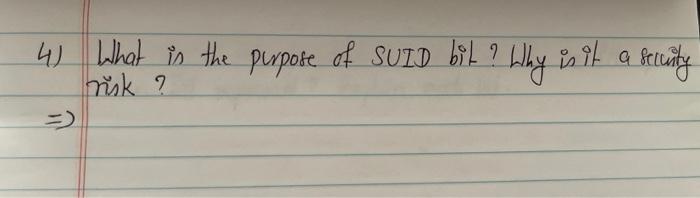 4) What is the purpose of SUID bit? Why is it a security
risk ?
=>